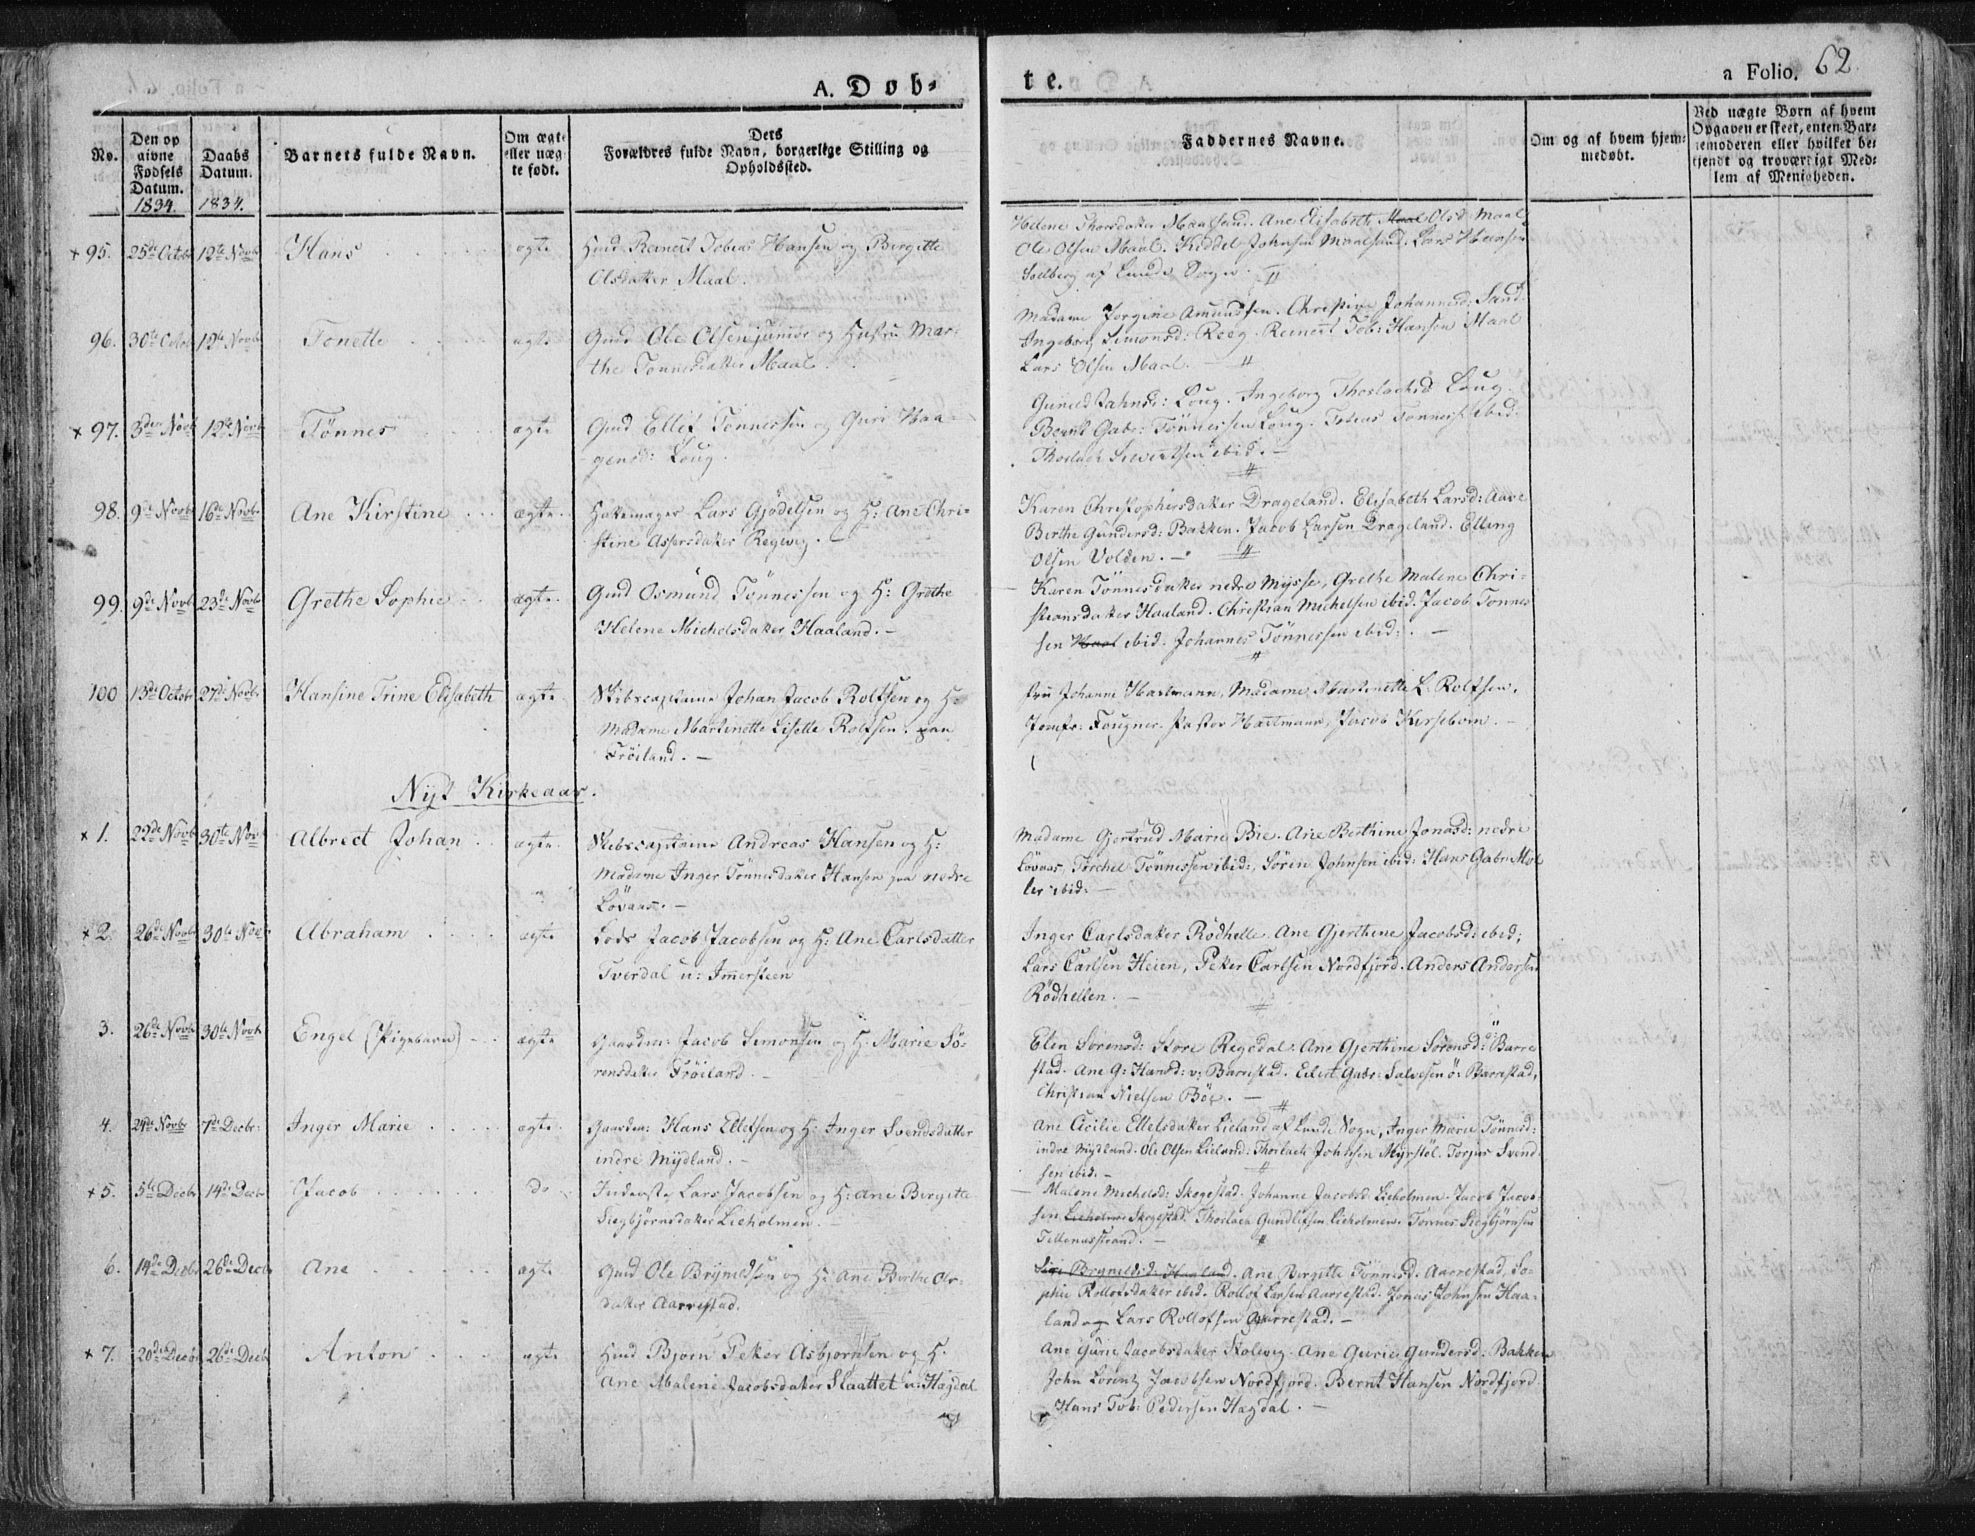 A. Døb-
te.
a Folio. 62.
No.
Den op
givne
Fødsels
Datum.
1834.
Daabs
Datum.
1834.
Barnets fulde Navn.
Om ægte
eller uæg-
te født.
Dets
Forældres fulde Navn, borgerlige Stilling og
Opholdssted.
Faddernes Navne.
Om og af hvem hjem-
medøbt.
Ved uægte Børn af hvem
Opgaven er skeet, enten Bar-
nemoderen eller hvilket be-
kjendt og troværdigt Med-
lem af Menigheden.
+ 95. 25de Octbr 12te Novbr Hans ægte Reinert Tobias Hansen og Birgitte
Olsdatter Maal.
Helene Thorsdatter Maalsund. Ane Elisabeth Maal Olsd. Maal
Ole Olsen Maal. Keddel Johnsen Maalsund. Lars Hansen
Solberg af Lunde Sogn.
96. 30te Octbr 12te Novbr Tonette ægte Gmd Ole Olsen junior og Hustru Mar-
the Tønnesdatter Maal.
Madame Jorgine Amundsen. Christine Johannesd: Sand.
Ingeborg Simonsd: Reeg. Reinert Tob: Hansen Maal
Lars Olsen Maal.
+ 97. 3die Novbr 12te Novbr Tønnes ægte Gmd Ellef Tønnessen og Guri Haa-
gensd: Loug.
Gunild Jahnsd: Loug. Ingeborg Thorlachsd Loug.
Bernt Gabr: Tønnessen Loug. Tobias Tønness: ibid:
Thorlach Sivertsen ibid. —
98. 9de Novbr 16de Novbr Ane Kirstine ægte Hattemager Lars Gjødelsen og H: Ane Chri-
stine Aspersdatter Regevig. —
Karen Christophersdatter Drageland. Elisabeth Larsd: Aave
Berthe Gundersd: Bakken. Jacob Larsen Drageland. Elling
Olsen Volden. —
99. 9de Novbr 23de Novbr Grethe Sophie ægte Gmd Osmund Tønnessen og H: Grethe
Helene Michelsdatter Haaland. —
Karen Tønnesdatter nedre Mysse, Grethe Malene Chri-
stiansdatter Haaland. Christian Michelsen ibid. Jacob Tønnes
sen Haal ibid. Johannes Tønnessen ibid:. —
100 13de Octbr 27de Novbr Hansine Trine Elisabeth ægte Skibscaptaine Johan Jacob Rolfsen og H:
Madame Martinette Liselle Rolfsen: paa
Frøiland. —
Fru Johanne Hartmann, Madame Martinette L: Rolfsen,
Jomfr: Fougner. Pastor Hartmann, Jacob Kirsebom. —
Nyt Kirkeaar.
+ 1. 22de Novbr 30te Nov Albrect Johan ægte Skibscaptaine Andreas Hansen og H:
Madame Inger Tønnesdatter Hansen paa nedre
Løvaas. —
Madame Gjertrud Marie Bie. Ane Berthine Jonasd: nedre
Løvaas, Torchel Tønnessen ibid:, Søren Johnsen ibid: Hans Gabr: Møl
ler ibid: —
+ 2. 26de Novbr 30te Nov Abraham ægte Lods Jacob Jacobsen og H: Ane Carlsdatter
Tverdal u: Imersteen
Inger Carlsdatter Rødhelle. Ane Gjerthine Jacobsd: ibid;
Lars Carlsen Heien, Peter Carlsen Nordfjord. Anders Andersen
Rødhellen. —
3. 26de Novbr 30te Novbr Engel (Pigebarn) ægte Gaardm: Jacob Simonsen og H: Marie Sø-
rensdatter Frøiland. —
Elen Sørensd: Store Regedal. Ane Gjerthine Sørensd: Barre
stad. Ane G: Hansd: v: Barrestad. Eilert Gabr: Salvesen ö: Barrestad,
Christian Nielsen Bøe. —
4. 24de Novbr 7de Decbr: Inger Marie ægte Gaardm: Hans Ellefsen og H: Inger Svendsdatter
indre Mydland. —
Ane Cicilie Ellefsdatter Lieland af Lunde Sogn, Inger Marie Tønnesd:
indre Mydland. Ole Olsen Lieland: Thorlach Johnsen Myrstøl. Torjus Svend
sen ibid. —
+ 5. 5te Decbr 14de Decbr Jacob do Inderste Lars Jacobsen og H: Ane Birgitte
Siegbjørnsdatter Lieholmen. —
Malene Michelsd: Skogestad. Johanne Jacobsd: Lieholmen. Jacob Jacob-
sen Lieholmen Skogestad. Thorlach Gundlefsen Lieholmen. Tønnes Siegbjørnsen
Tellenæsstrand. —
6. 14de Decbr 26de Decbr Ane ægte Gmd Ole Brynildsen og H: Ane Birthe Ols-
datter Aarrestad.
Siri Brynildsd: Haaland. Ane Birgitte Tønnesd. Aarrestad, So-
phie Rollofsdatter ibid. Rollof Larsen Aarrestad. Jonas Johnsen Haa-
land og Lars Rollofsen Aarrestad. —
+ 7. 20de Decbr 26de Decbr Anton ægte Bjørn Peter Asbjørnsen og H.
Ane Malene Jacobsdatter Slaattet u: Hagdal
Ane Gurie Jacobsdatter Stolevig. Ane Gurie Gundersd: Bakken
John Lorentz Jacobsen Nordfjord. Bernt Hansen Nordfjord
Hans Tob: Pedersen Hagdal. —